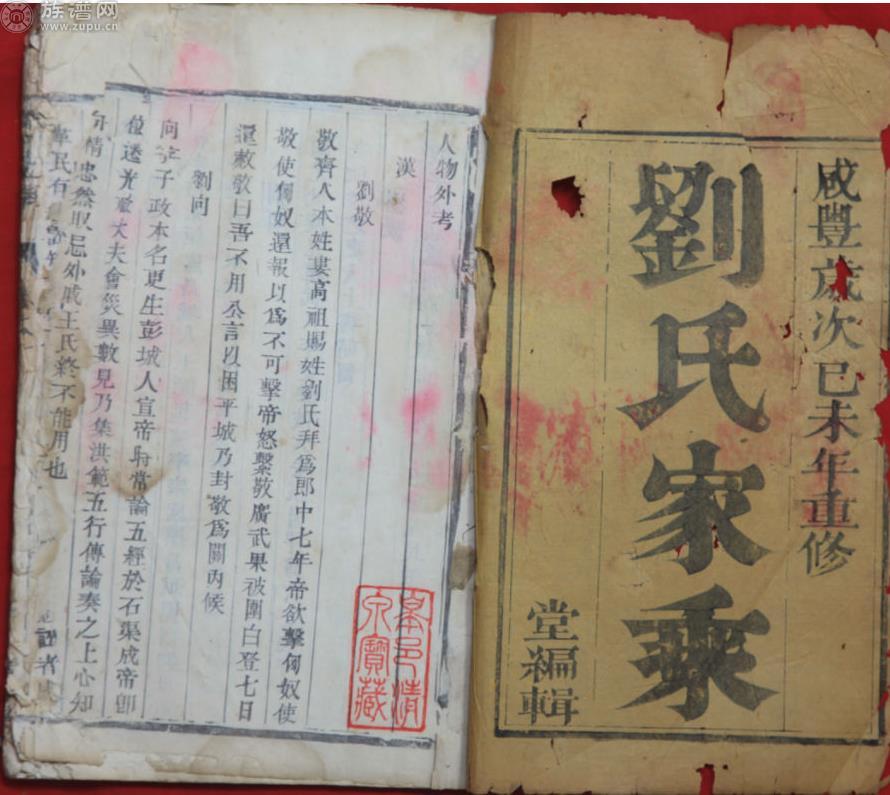 族谱网
www.zupu.cn
咸豐歲次己未年重修
劉氏家乘
堂編輯
人物外考
漢
劉敬
敬齊人本姓婁高祖賜姓劉氏拜爲郎中七年帝欲擊匈奴使
敬使匈奴還報以爲不可擊帝怒繫敬廣武果被圍白登七日
還赦敬曰吾不用公言以困平城乃封敬爲關內候
劉向
向字子政本名更生彭城人宣帝時常論五經於石渠成帝卽
位遷光祿大夫會災異數見乃集洪範五行傳論奏之上心知
忠然取忌外戚王氏終不能用也
泉寶藏